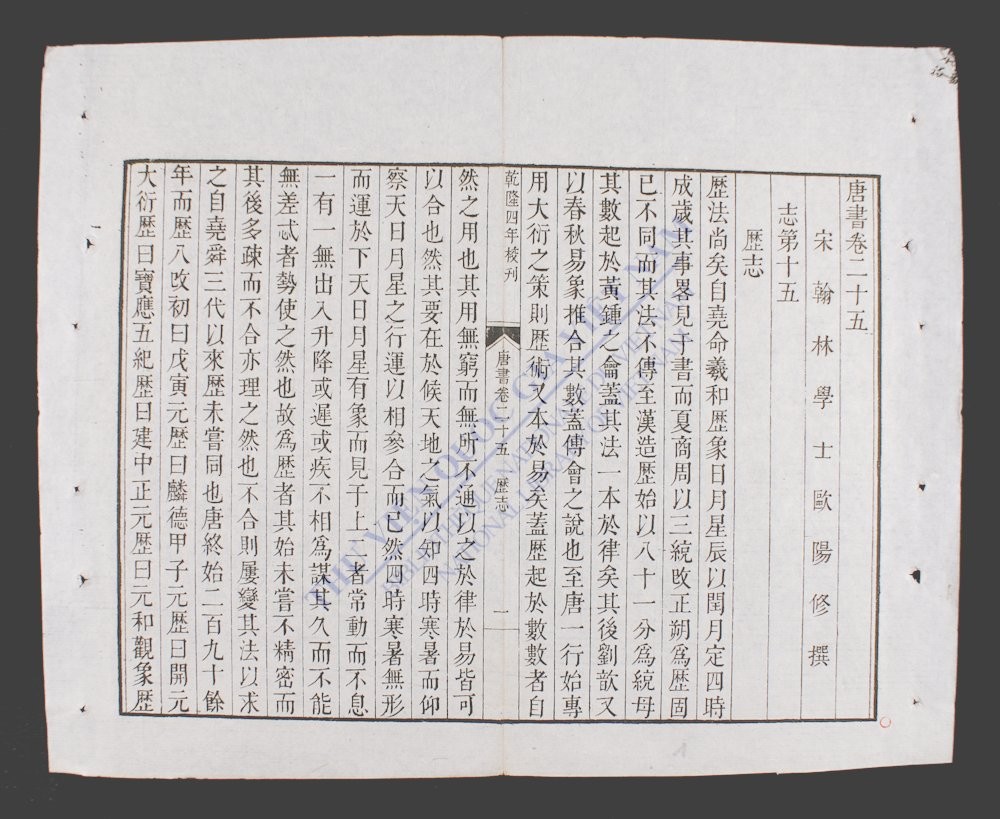 唐書卷二十五
宋翰林學士歐陽修撰
志第十五
歴志
歴法尚矣自堯命羲和歴象日月星辰以閏月定四時
成歲其事畧見于書而夏商周以三統改正朔爲歴固
已不同而其法不傳至漢造歴始以八十一分爲統母
其數起於黃鍾之龠蓋其法一本於律矣其後劉歆又
以春秋易象推合其數蓋傳會之說也至唐一行始專
用大衍之策則歴術又本於易矣蓋歴起於數數者自
乾隆四年校刊
唐書卷二十五 歴志
一
然之用也其用無窮而無所不通以之於律於易皆可
以合也然其要在於候天地之氣以知四時寒暑而仰
察天日月星之行運以相參合而已然四時寒暑無形
而運於下天日月星有象而見于上二者常動而不息
一有一無出入升降或遲或疾不相爲謀其久而不能
無差忒者勢使之然也故爲歴者其始未嘗不精密而
其後多疎而不合亦理之然也不合則屢變其法以求
之自堯舜三代以來歴未嘗同也唐終始二百九十餘
年而歴八改初曰戊寅元歴曰麟德甲子元歴曰開元
大衍歴曰寶應五紀歴曰建中正元歴曰元和觀象歴
THƯ VIỆN QUỐC GIA VIỆT NAM
BIBLIOTHÈQUE NATIONALE DU VIETNAM
NATIONAL LIBRARY OF VIETNAM